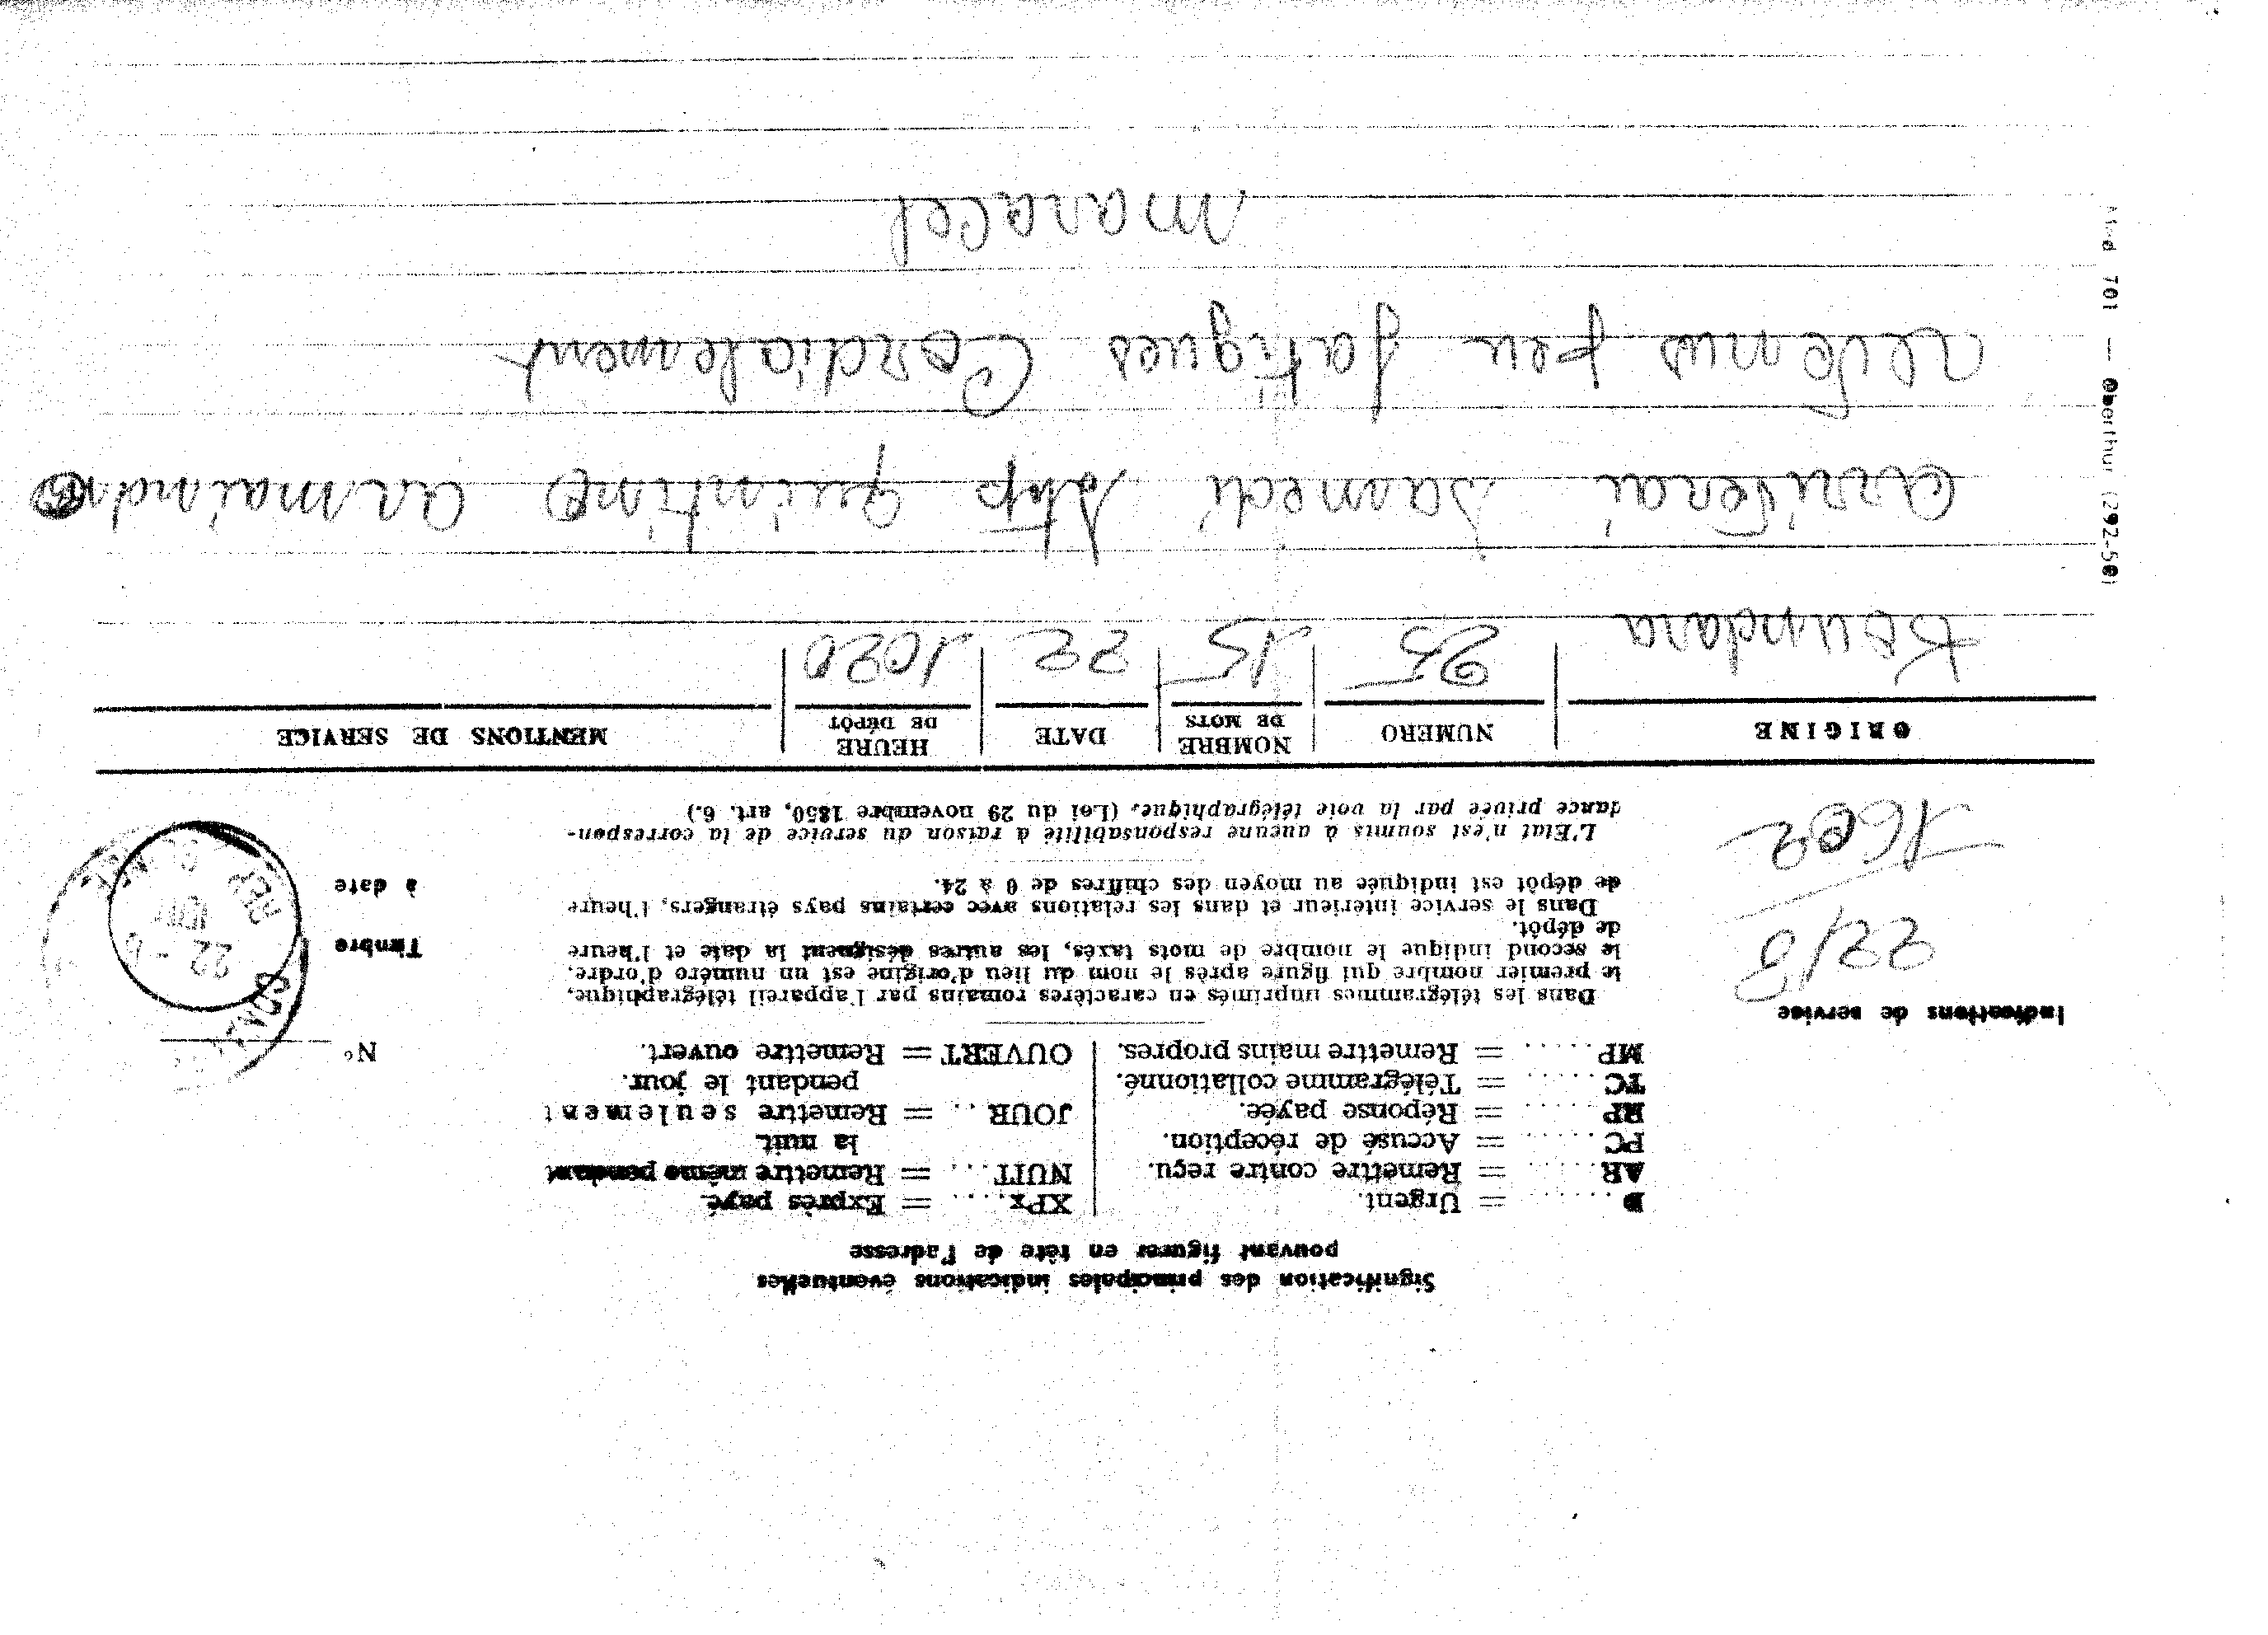 Signification des principales indications éventuelles
pouvant figurer en tête de l'adresse
D...... = Urgent.
AR...... = Remettre contre reçu.
PC...... = Accusé de réception.
RP...... = Réponse payée.
TC...... = Télégramme collationné.
MP...... = Remettre mains propres.
XPx.... = Exprès payé.
NUIT... = Remettre même pendant
la nuit.
JOUR .. = Remettre seulement
pendant le jour.
OUVERT = Remettre ouvert.
Indications de service
22/8
1602
Dans les télégrammes imprimés en caractères romains par l'appareil télégraphique,
le premier nombre qui figure après le nom du lieu d'origine est un numéro d'ordre,
le second indique le nombre de mots taxés, les autres désignent la date et l'heure
de dépôt.
Dans le service intérieur et dans les relations avec certains pays étrangers, l'heure
de dépôt est indiquée au moyen des chiffres de 0 à 24.
L'Etat n'est soumis à aucune responsabilité à raison du service de la correspon-
dance privée par la voie télégraphique. (Loi du 29 novembre 1850, art. 6.)
N°
Timbre
à date
22
ORIGINE
NUMERO
NOMBRE
DE MOTS
DATE
HEURE
DE DÉPÔT
MENTIONS DE SERVICE
Koundara 95 15 22 1020
arriverai samedi stp
revenus peu fatigues Cordialement
Mod 701 — Oberthur (292-50)